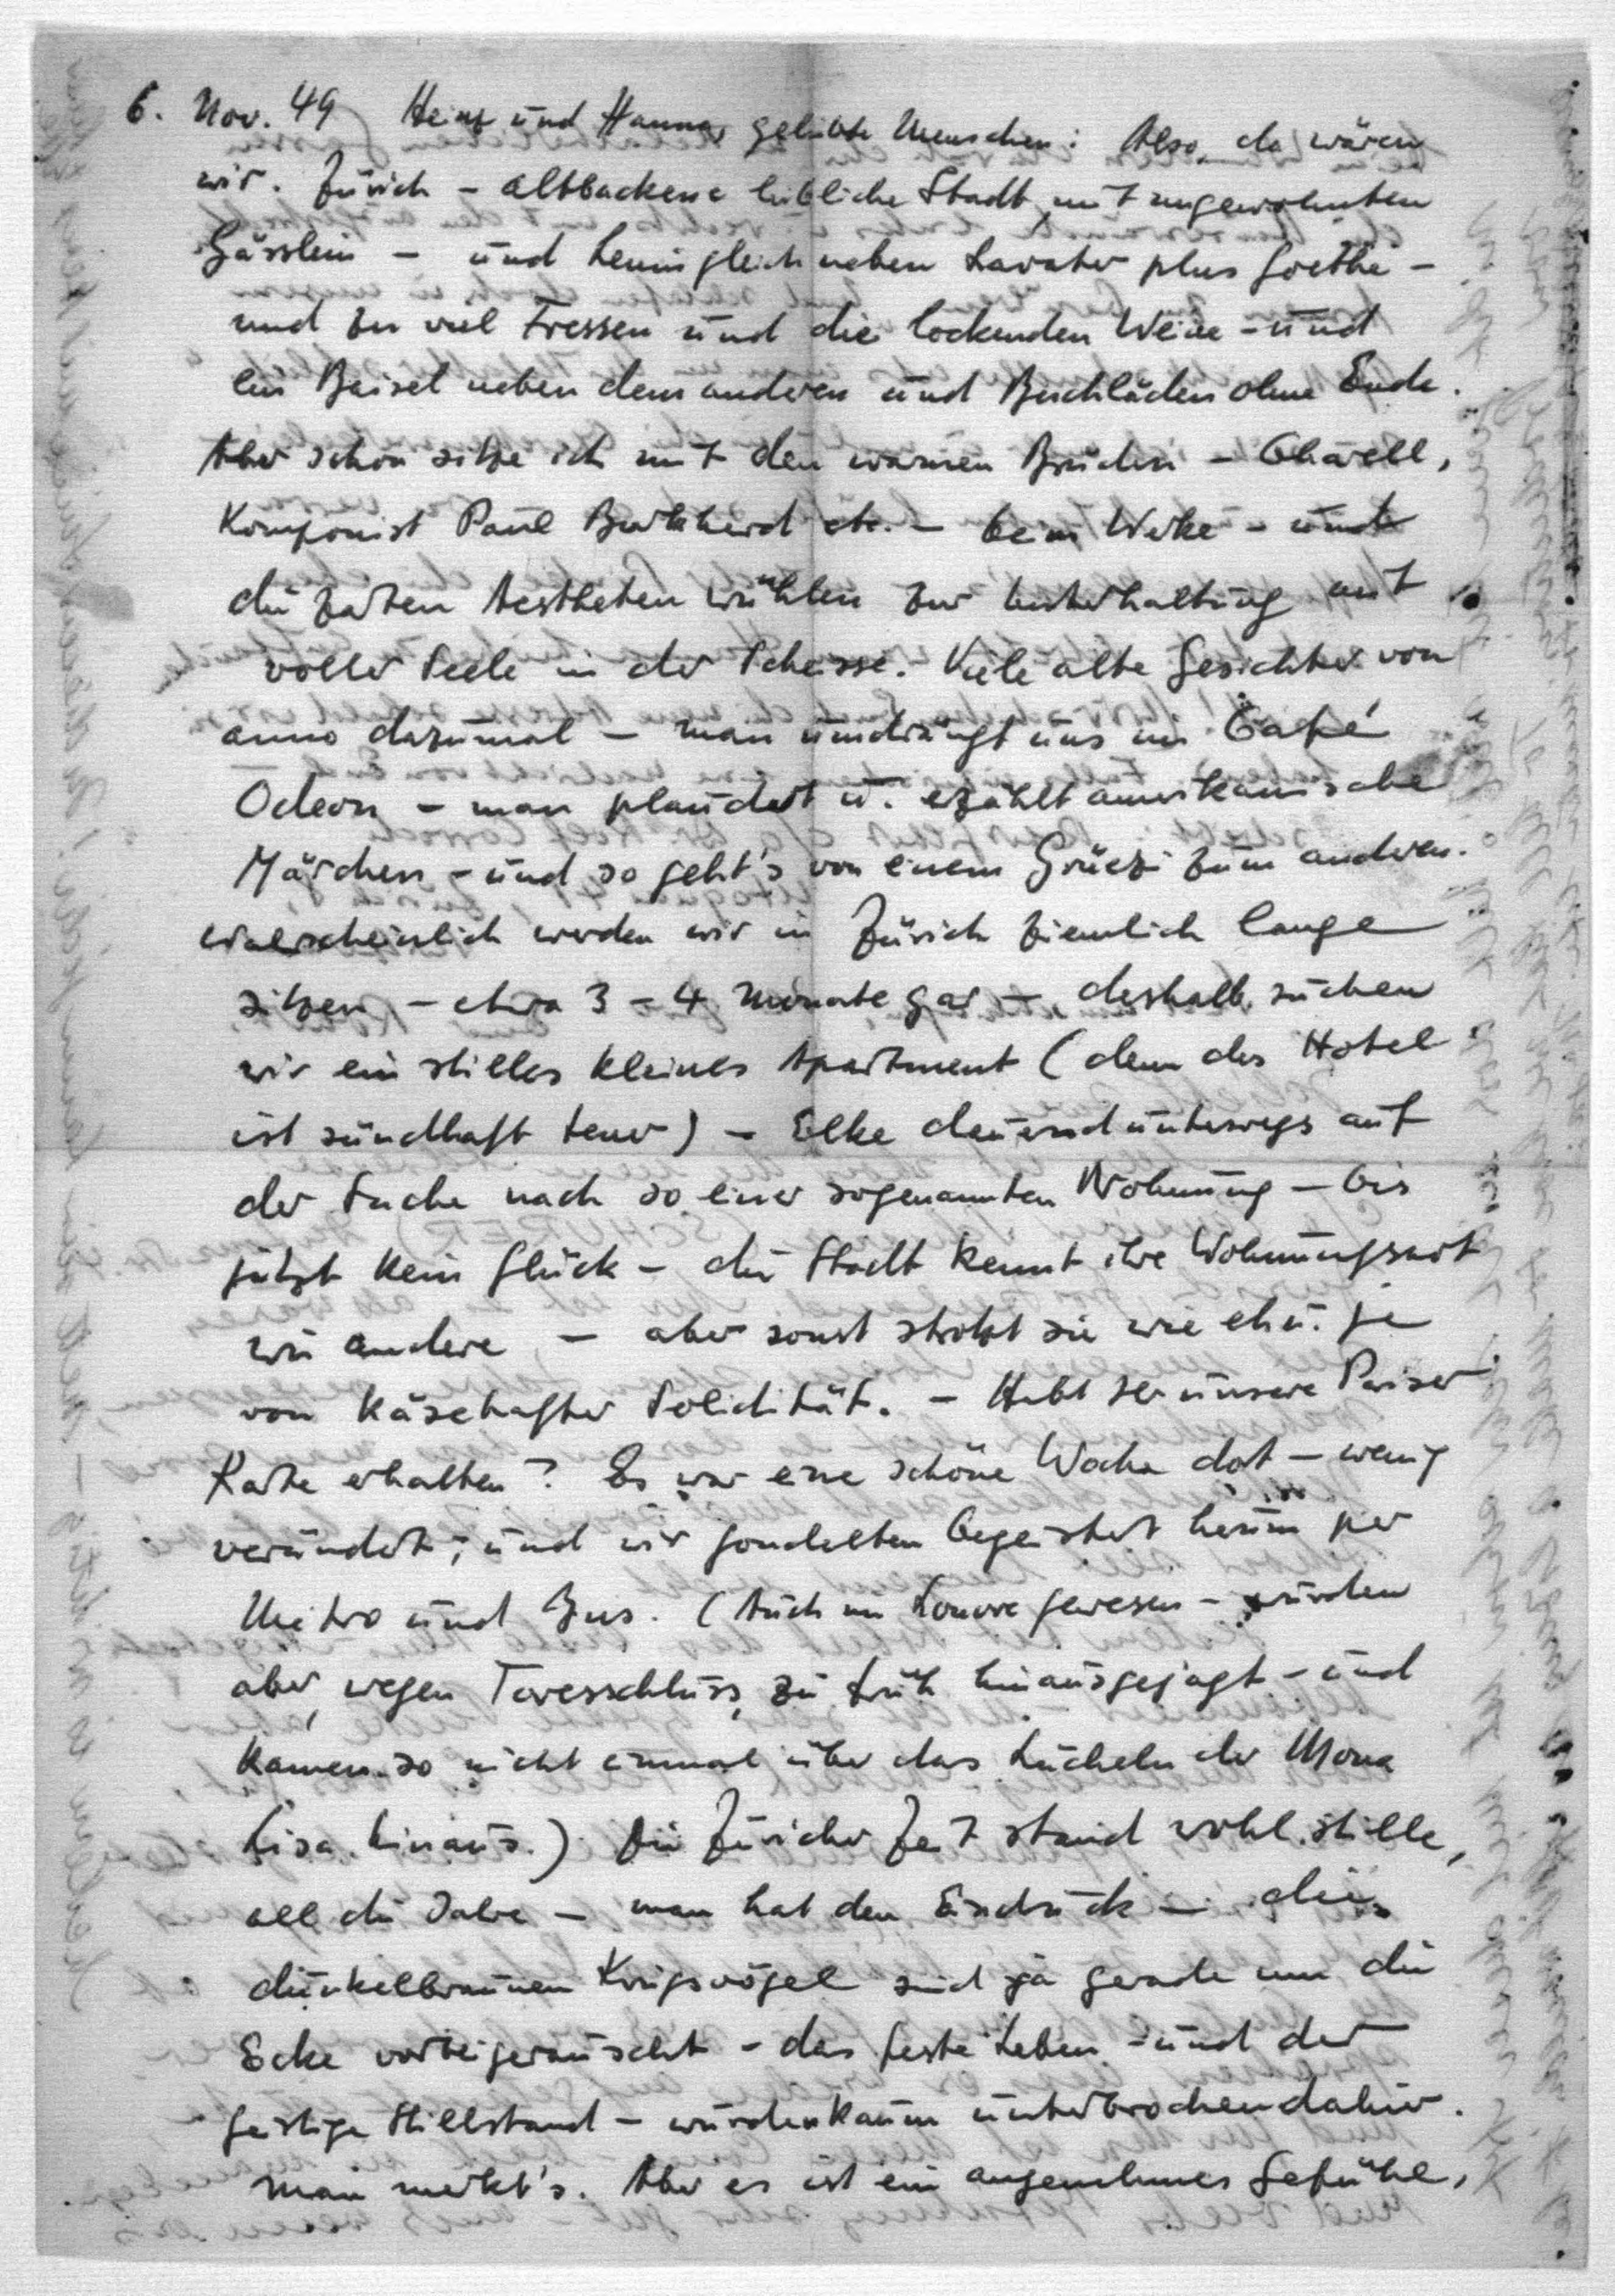 6. Nov. 49 Heinz und Hanna, geliebte Menschen: Also, da wären
wir. Zürich – altbackene liebliche Stadt mit ungewohnten
Gässlein – und Lenin gleich neben Lavater plus Goethe –
und zu viel Fressen und die lockenden Weine – und
ein Beisel neben dem anderen und Buchläden ohne Ende.
Aber schon sitze ich mit den warmen Brüdern –
Komponist Paul Burkhard etc. – beim – und
die zarten Aestheten wühlen zur Unterhaltung mit
voller Seele in der Scheisse. Viele alte Gesichter von
anno dazumal – man umdrängt uns im Café
Odeon – man plaudert u. erzählt amerikanische
Märchen – und so geht's von einem Grüezi zum anderen.
Warscheinlich werden wir in Zürich ziemlich lange
sitzen – etwa 3 – 4 Monate gar – deshalb suchen
wir ein stilles kleines Apartment (denn das Hotel
ist sündhaft teuer) – Elke dauernd unterwegs auf
der Suche nach so einer sogenannten Wohnung – bis
jetzt kein Glück – die Stadt kennt ihre Wohnungsnot
wie andere – aber sonst strotzt sie wie eh u. je
von käsehafter Solidität. – Habt Ihr unsere Pariser
Karte erhalten? Es war eine schöne Woche dort – wenig
verändert; und wir gondelten begeistert herum per
Metro und Bus. (Auch im Louvre gewesen – wurden
aber, wegen Toresschluss, zu früh hinausgejagt – und
kamen so nicht einmal über das Lächeln der Mona
Lisa hinaus.) Die Züricher Zeit stand wohl stille,
all die Jahre – man hat den Eindruck – die
dunkelbraunen Kriegsvögel sind ja gerade um die
Ecke vorbeigerauscht – das feste Leben – und der
geistige Stillstand – wurden kaum unterbrochen dahier.
Man merkt's. Aber es ist ein angenehmes Gefühl,